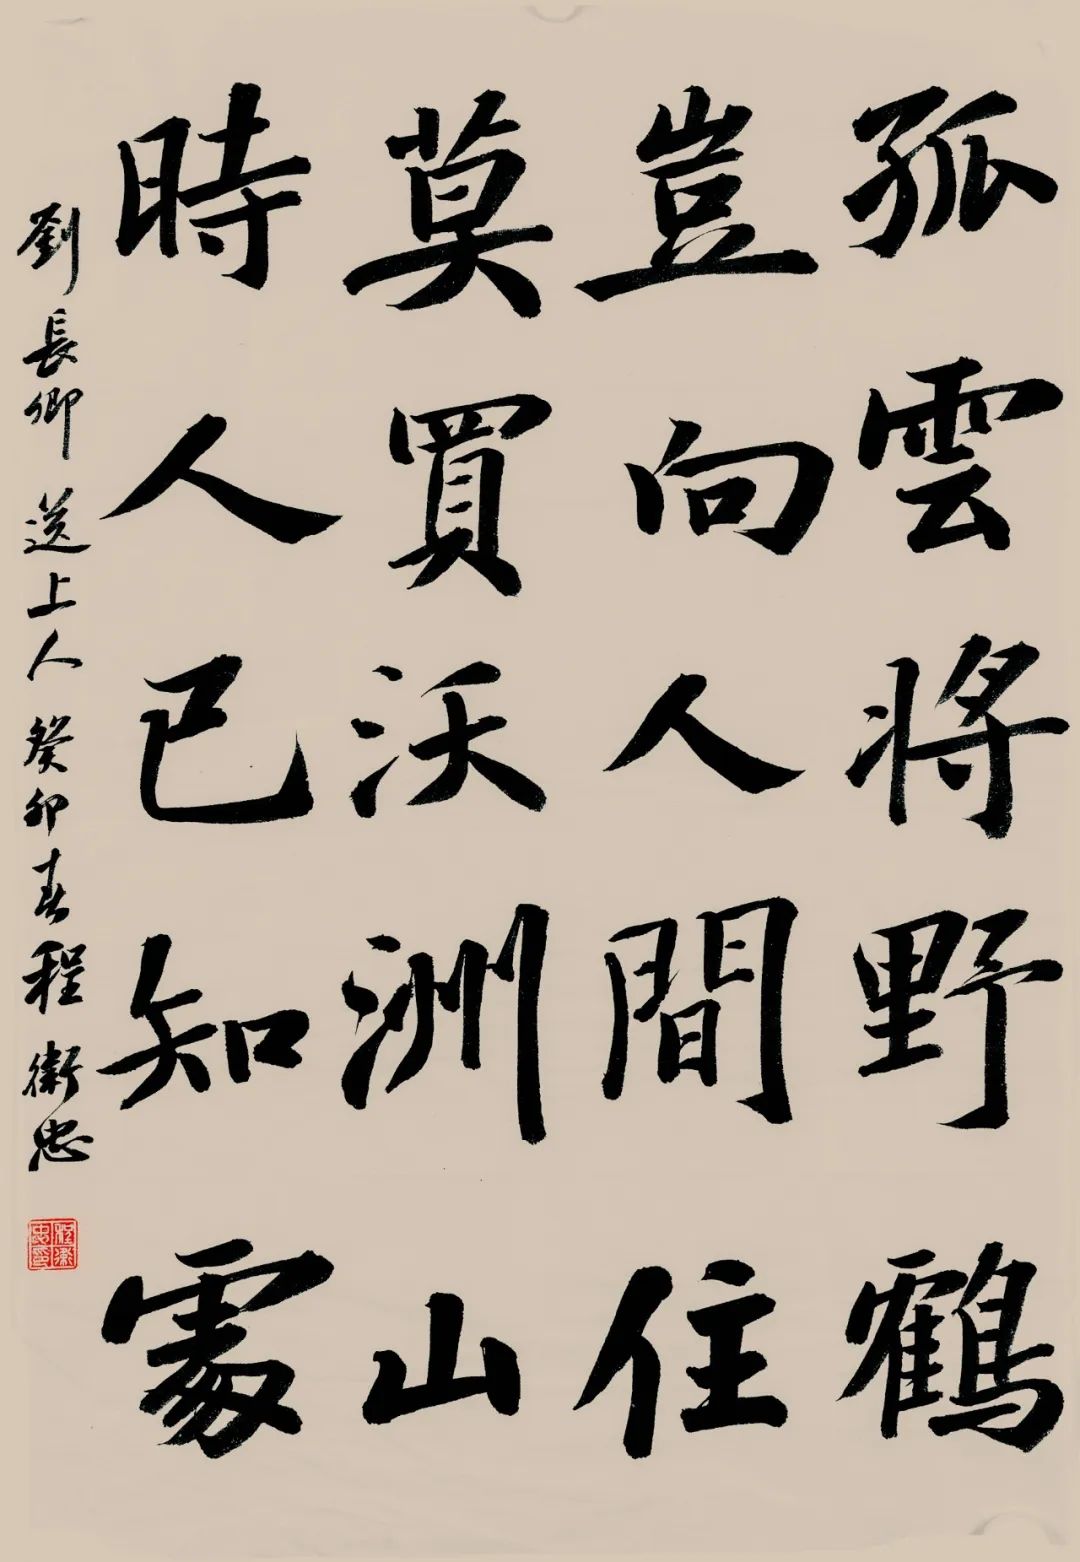 孤雲將野鶴
豈向人間住
莫買沃洲山
時人已知處
劉長卿 送上人 癸卯春 程衛忠
程衛忠印